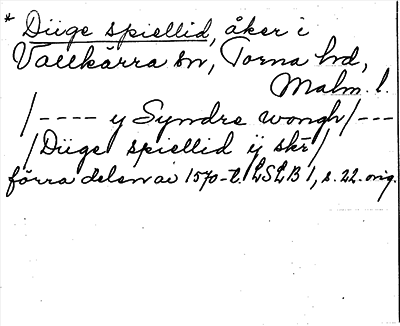 * Diige spiellid, åker i
Vallkärra sn, Torna hd,
Malm. l.
/---- y Syndre wongh/---
/Diige spiellid ÿ skr̄/
förra delen av 1570-t. LSLB 1, s. 22. orig.